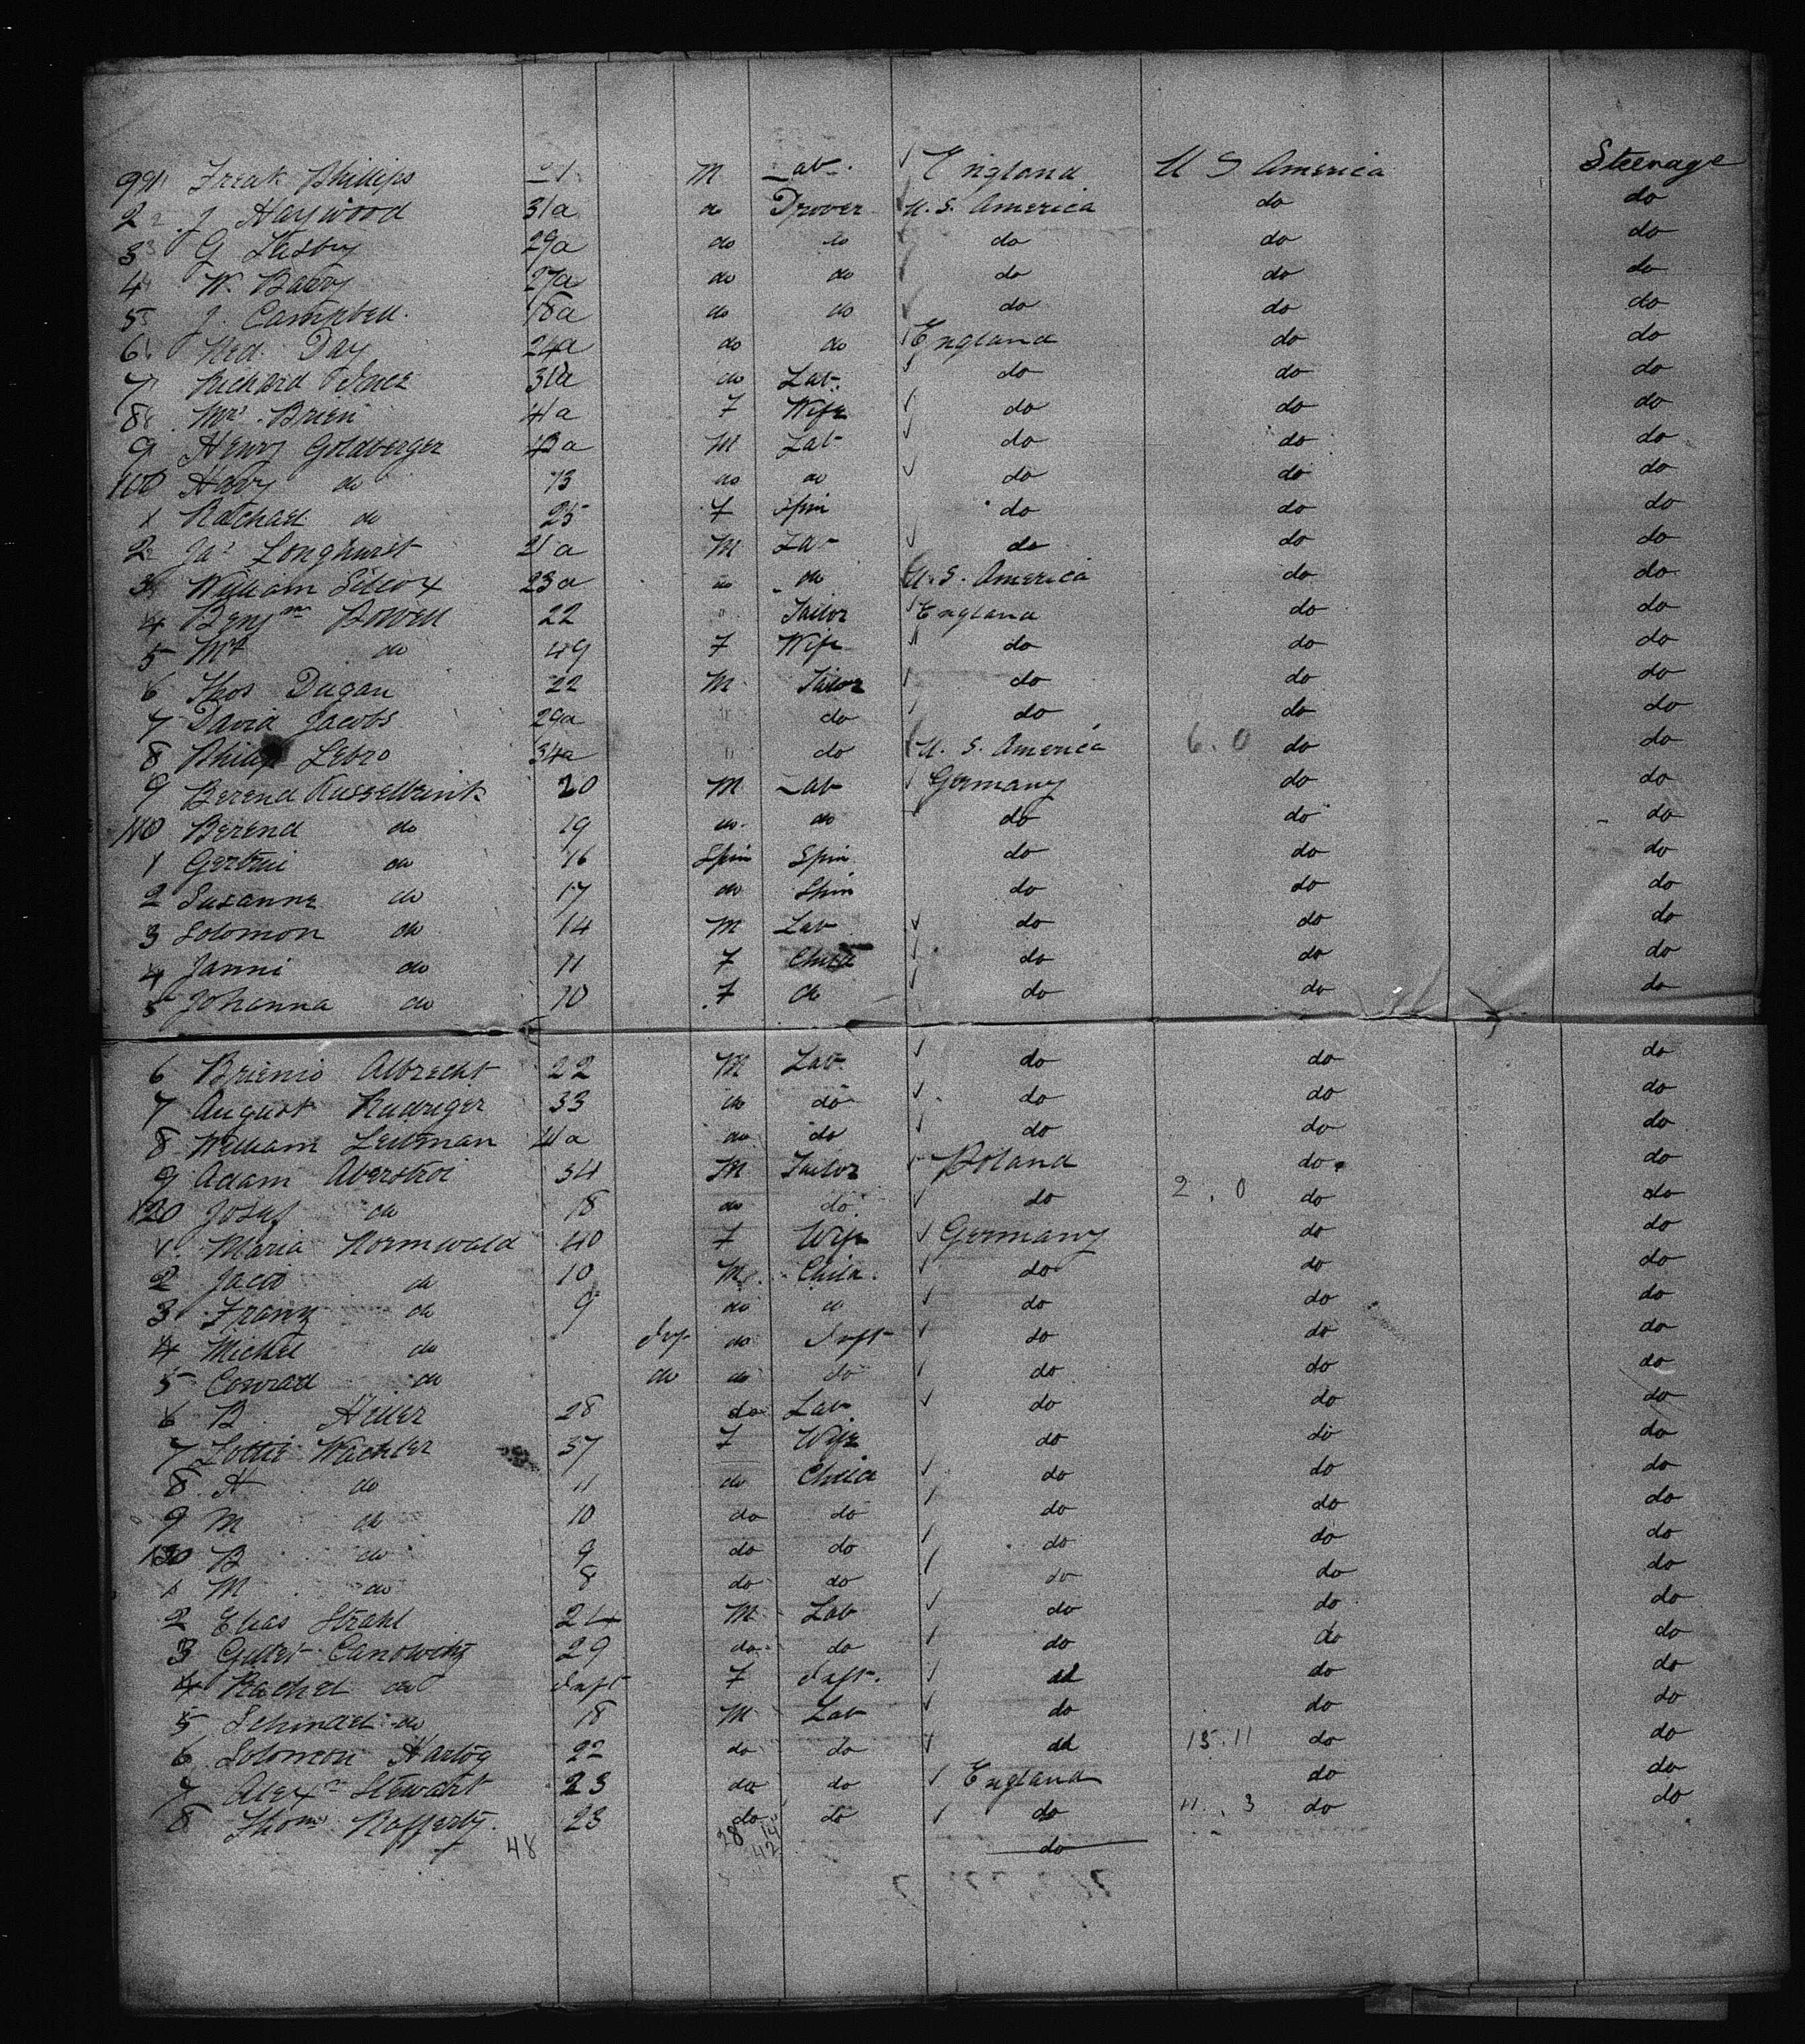 991 Freak Phillips 21 M Lab. England U S America Steerage
2 J Haywood 31a do Drover U.S. America do do
3 G 29a do do do do do
4 W. Barry 27a do do do do do
5 J. Campbell. 18a do do do do do
6 Ned. Day 24a do do England do do
7 Richard 31a do Lab. do do do
8 Mrs. Brien 41a F Wife do do do
9 Henry Goldberger 42a M Lab do do do
100 Harry do 13 do do do do do
1 Rachael do 25 F Spin do do do
2 Jas Longhurst 21a M Lab do do do
3 William Silcox 23a do do U.S. America do do
4 Benjm Bowell 22 " Tailor England do do
5 Mrs do 49 F Wife do do do
6 Thos Dugan 22 M Tailor do do do
7 David Jacobs 29a " do do do do
8 Philip Lebro 34a " do U. S. America 6.0 do do
9 Berend Kusselbrink 20 M Lab Germany do do
110 Berend do 19 do do do do do
1 Gertrui do 16 Spin Spin do do do
2 Susanne do 17 do Spin do do do
3 Solomon do 14 M Lab do do do
4 Janni do 11 F Child do do do
5 Johanna do 10 F do do do do
6 Brienio Albrecht 22 M Lab do do do
7 August Rudriger 33 do do do do do
8 William Leitman 41a do do do do do
9 Adam Aberstroi 34 M Tailor Poland do do
120 Josef do 18 do do do 2.0 do do
1 Maria Normwald 40 F Wife Germany do do
2 Jacob do 10 M Child do do do
3 Franz do 9 do do do do do
4 Michel do Inf do Inft do do do
5 Conrad do do do do do do do
6 B Heller 28 do Lab do do do
7 Lottie Wachler 37 F Wife do do do
8 H do 11 do Child do do do
9 M do 10 do do do do do
130 B do 9 do do do do do
1 M do 8 do do do do do
2 Elias Strahl 24 M Lab do do do
3 Canowitz 29 do do do do do
4 Rachel do Inft F Inft. do do do
5 Schmael do 18 M Lab do do do
6 Solomon Hartog 22 do do do 15.11 do do
7 Alexr Stewart 23 do do England do do
8 Thom Rafferty. 23 do do do 11.3 do do
48 28 14 42 do